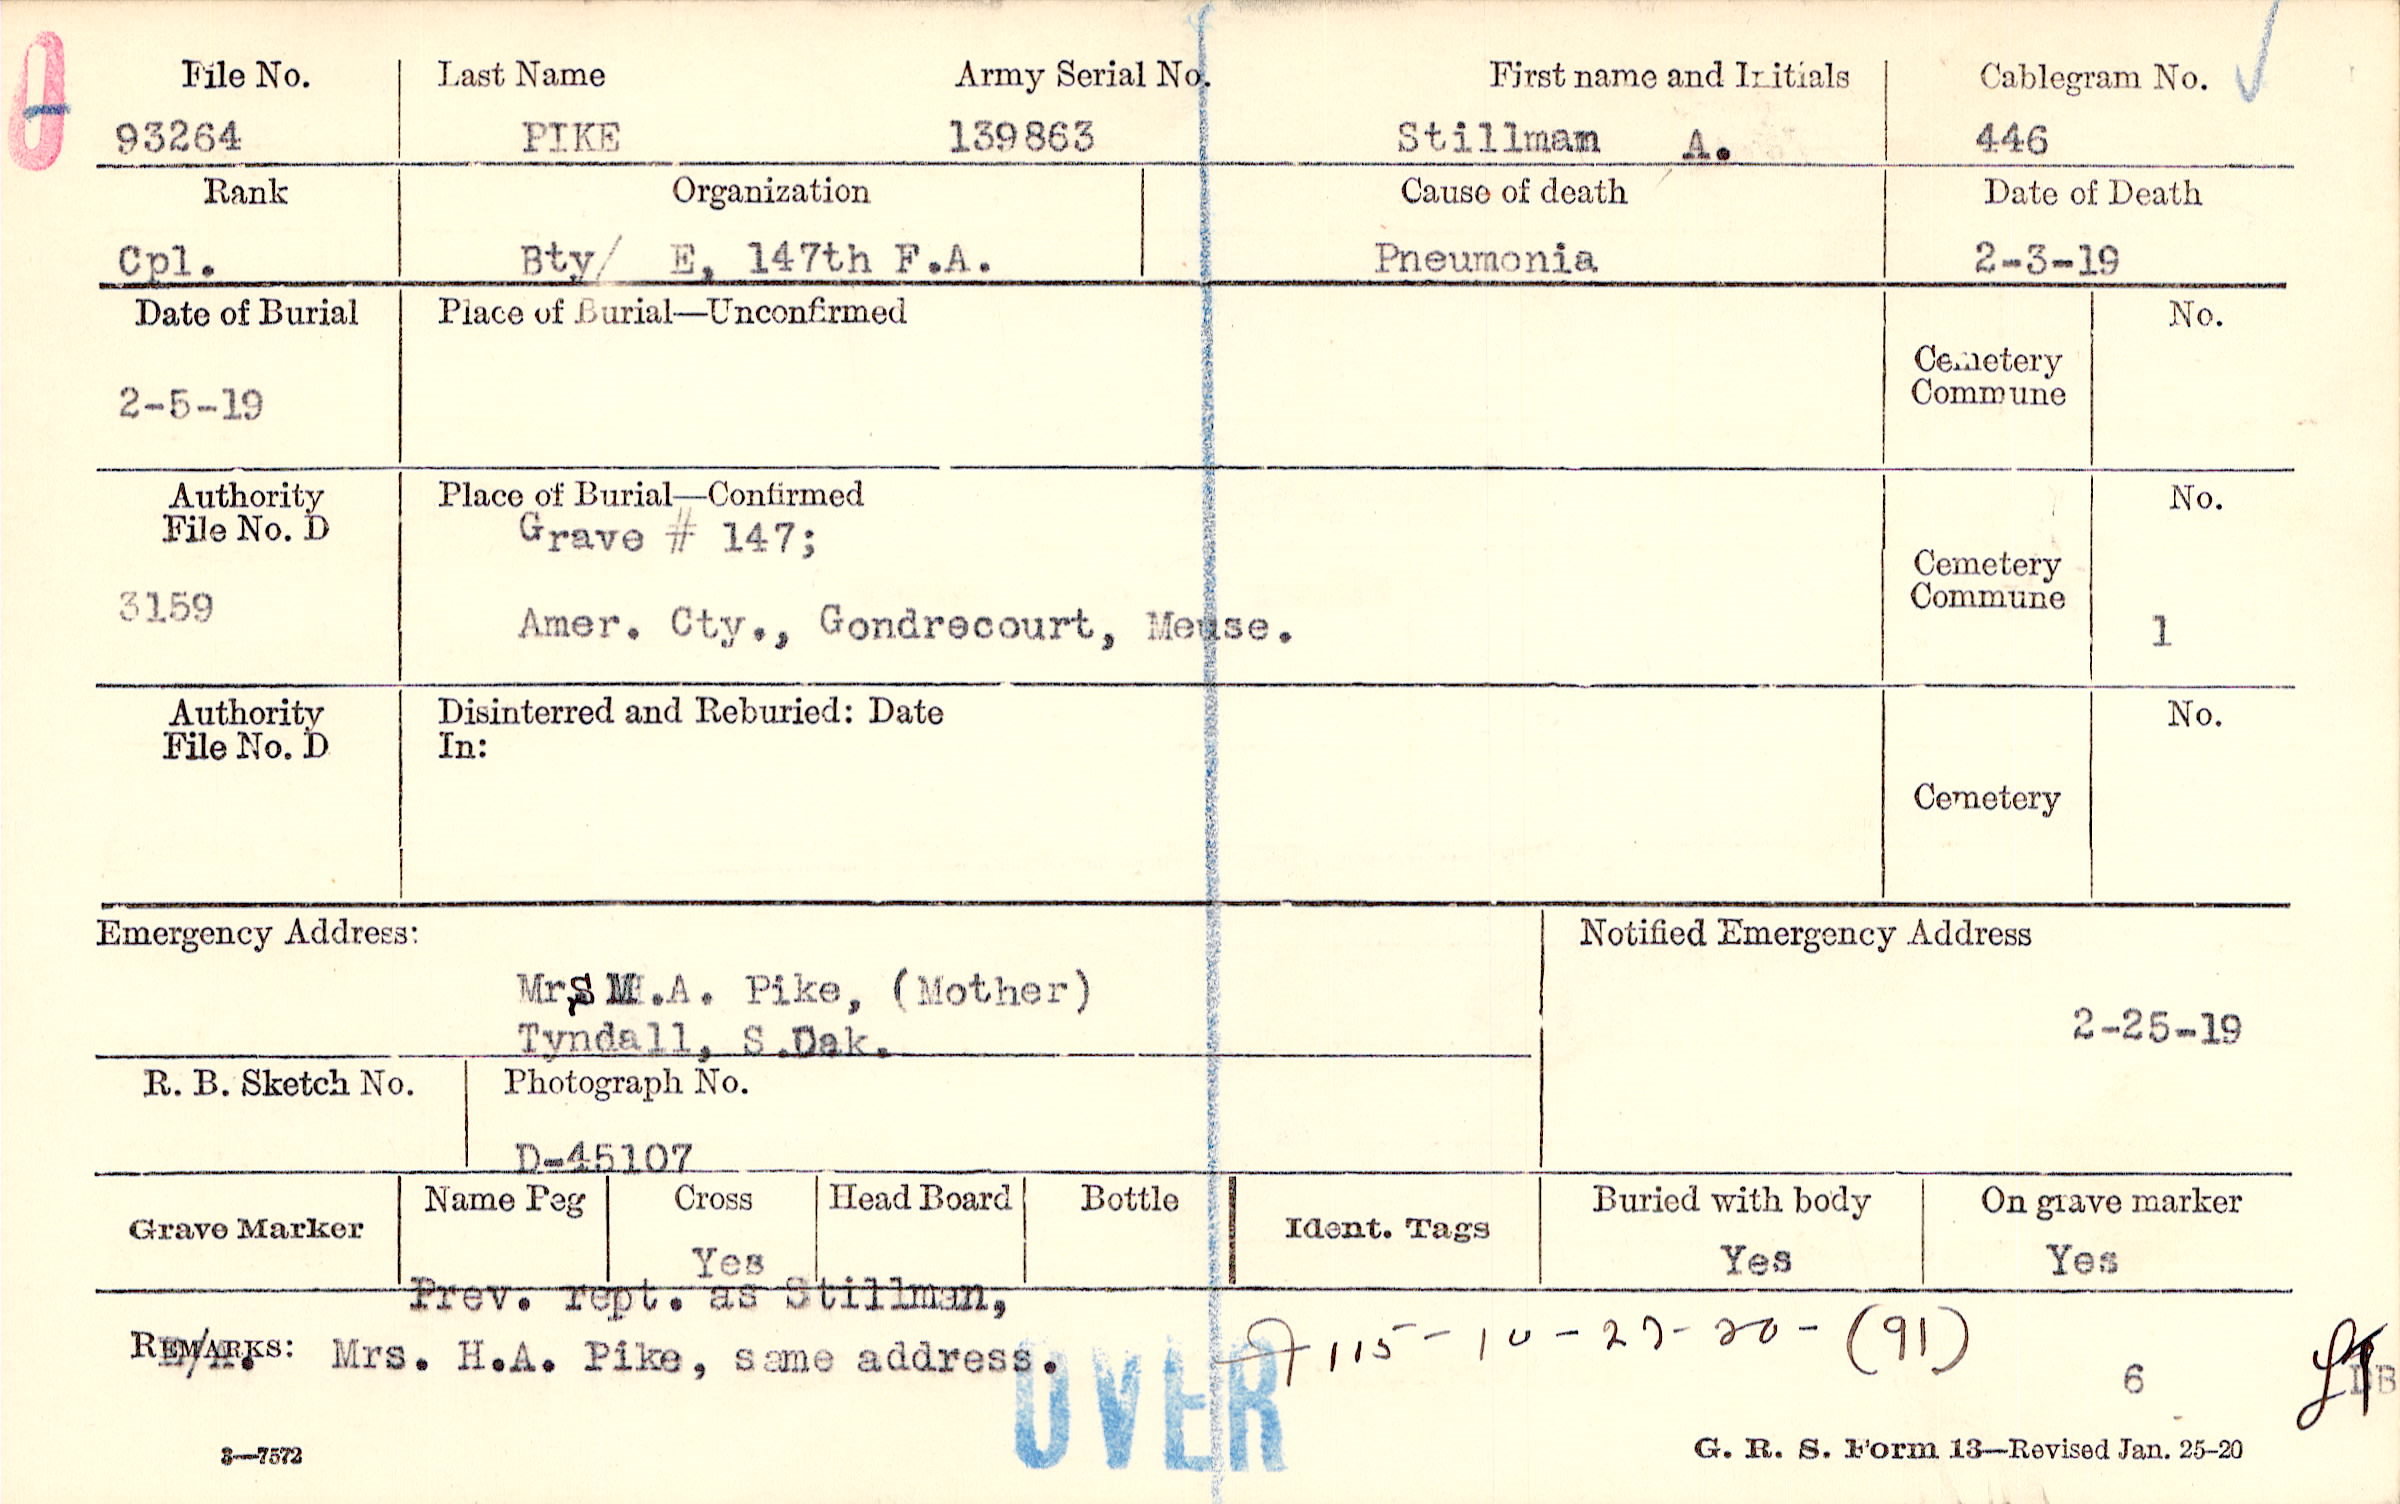 File No. Last Name Army Serial No. First name and Initials Cablegram No.
93264 PIKE 139863 Stillman A. 446
Rank Organization Cause of death Date of Death
Cpl. Bty/ E, 147th F.A. Pneumonia 2-3-19
Date of Burial Place of Burial—Unconfirmed No.
Cemetery
Commune
2-5-19
Authority Place of Burial—Confirmed No.
File No. D Grave # 147;
Cemetery
Commune
3159 Amer. Cty., Gondrecourt, Meuse. 1
Authority Disinterred and Reburied: Date No.
File No. D In:
Cemetery
Emergency Address: Notified Emergency Address
Mrs M.A. Pike, (Mother)
Tyndall, S.Dak. 2-25-19
R. B. Sketch No. Photograph No.
D-45107
Grave Marker Name Peg Cross Head Board Bottle Ident. Tags Buried with body On grave marker
Yes Yes Yes
Prev. rept. as Stillman,
REMARKS: Mrs. H.A. Pike, same address.
115-10-27-20-(91)
6
OVER
3—7572 G. R. S. Form 13—Revised Jan. 25-20